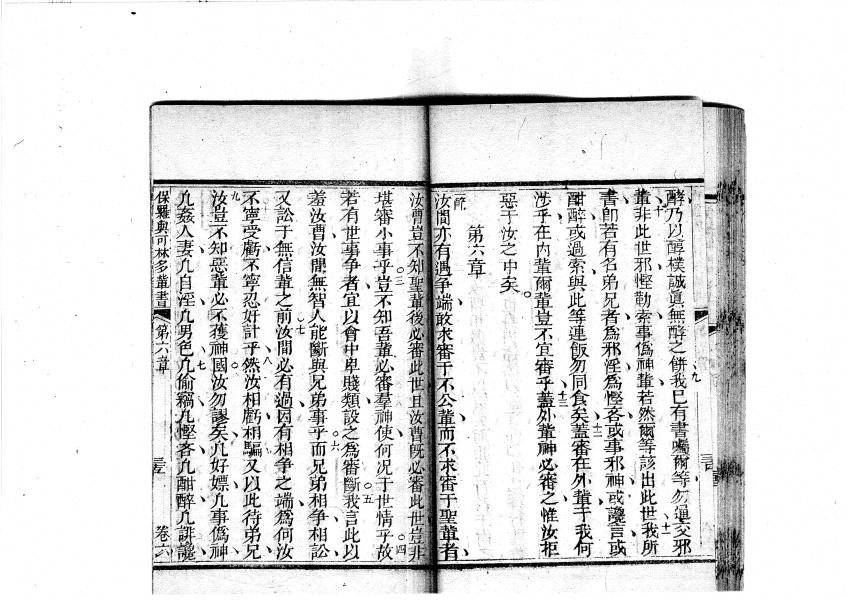 酵乃以醇樸誠眞無酵之餅我已有書囑爾等勿連交邪
輩非此世邪慳勒索事偽神輩若然爾等該出此世我所
書即若有名弟兄者為邪淫為慳吝或事邪神或讒言或
酣醉或過索與此等連飯勿同食矣蓋審在外輩于我何
涉乎在内輩爾輩豈不宜審乎蓋外輩神必審之惟汝拒
惡于汝之中矣。
第六章
汝間亦有遇爭端敢求審于不公輩而不求審于聖輩者
汝曹豈不知聖輩後必審此世且汝曹既必審此世豈非
堪審小事乎豈不知吾輩必審羣神使何况于世情乎故
若有世事爭者宜以會中卑賤類設之為審斷我言此以
羞汝曹汝間無智人能斷與兄弟事乎而兄弟相爭相訟
又訟于無信輩之前汝間必有過因有相爭之端為何汝
不寧受虧不寧忍奸計乎然汝相虧相騙又以此待弟兄
汝豈不知惡輩必不獲神國汝勿謬矣凡好嫖凡事偽神
凡姦人妻凡自淫凡男色凡偷竊凡慳吝凡酣醉凡誹讒
保羅與可林多輩書 第六章 卷六